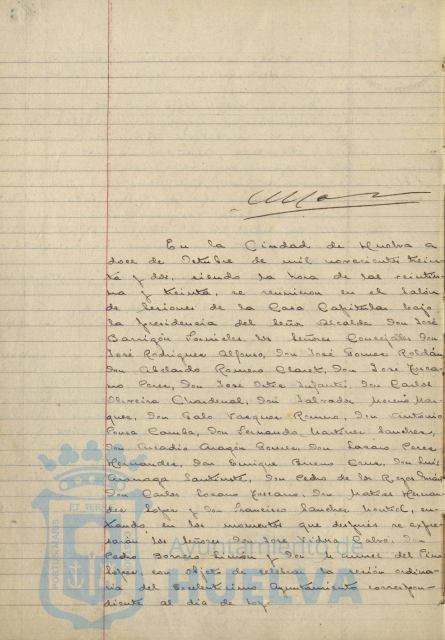 En la Ciudad de Huelva a
doce de Octubre de mil novecientos trein-
ta y dos, siendo la hora de las veintiu-
na y treinta, se reunieron en el Salón
de Sesiones de la Casa Capitular bajo
la presidencia del Señor Alcalde Don José
Barrigón Fornieles los Señores Concejales Don
José Rodriguez Alfonso, Don José Gomez Roldán,
Don Abelardo Romero Claret, Don José
Perez, Don José Ortiz Infante, Don Carlos
Oliveira Chardenal, Don Salvador Moreno Mar-
quez, Don Galo Vazquez Romero, Don Antonio
Pousa Camba, Don Fernando Martinez Sanchez,
Don Amadio Aragón Gomez, Don Lázaro Perez
Hernandez, Don Enrique Bueno Cruz, Don Luis
Don Pedro de los Reyes
Don Carlos Lozano Don Matias Hernan-
dez Lopez y Don Francisco Sanchez en-
trando en los momentos que después se expre-
sarán los señores Don José Tidora Calvo, Don
Pedro Borrero Limón y Don Manuel del Pino
Lopez con objeto de celebrar la sesión ordina-
ria del Excelentísimo Ayuntamiento correspon-
diente al día de hoy.
PORTUS MARIS
ET TERRE
Ayuntamiento de
HUELVA